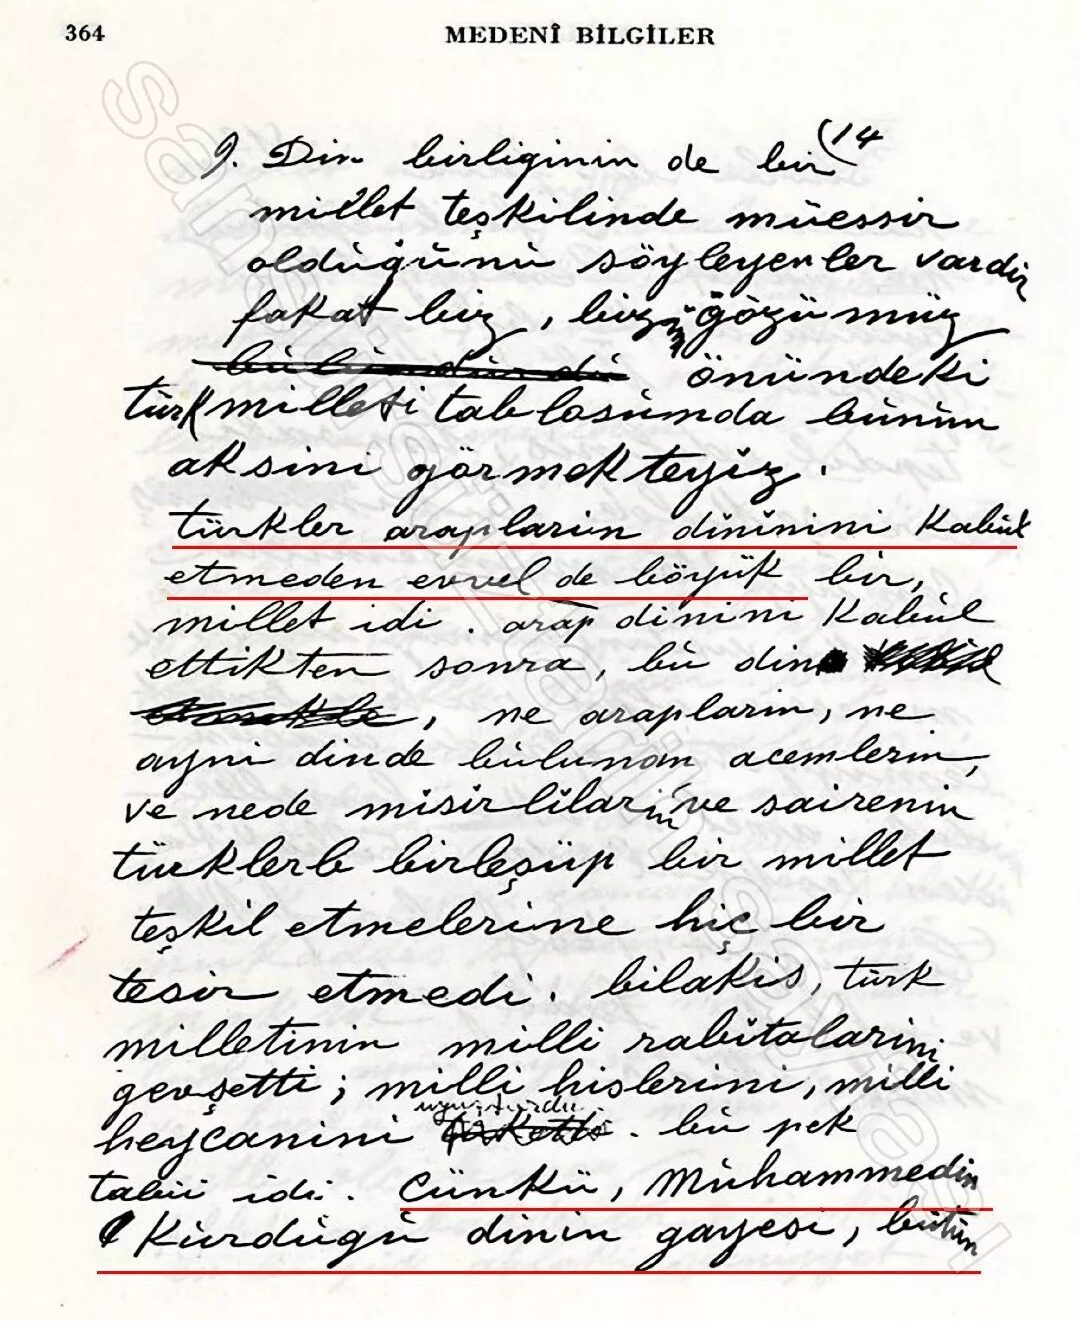 364 MEDENÎ BİLGİLER
9. Din birliginin de bir (14
millet teşkilinde müessir
olduğunu söyleyenler vardır
fakat biz, bizim gözümüz
önündeki
türk milleti tablosunda bunun
aksini görmekteyiz.
türkler arapların dininini Kabul
etmeden evvel de böyük bir,
millet idi. arap dinini Kabul
ettikten sonra, bu din
, ne arapların, ne
ayni dinde bulunan acemlerin,
ve nede mısırlıların ve sairenin
türklerle birleşüp bir millet
teşkil etmelerine hiç bir
tesir etmedi. bilakis, türk
milletinin milli rabıtalarını
gevşetti; milli hislerini, milli
uyuşturdu
heycanini . bu pek
tabii idi. Cünkü, Muhammedin
Kurdugu dinin gayesi, bütün